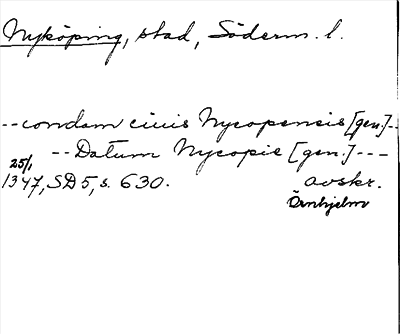 Nyköping, stad, Söderm. l.
--condam ciuis Nycopensis [gen.]--
--Datum Nycopie [gen.]---
25/1
1347, SD 5, s. 630. avskr.
Örnhjelm